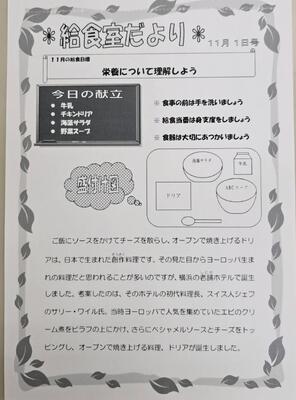 ＊給食室だより＊
１１月 １日号
１１月の給食目標
栄養について理解しよう
今日の献立
● 牛乳
● チキンドリア
● 海藻サラダ
● 野菜スープ
● 食事の前は手を洗いましょう
● 給食当番は身支度をしましょう
● 食器は大切にあつかいましょう
盛付け図
海藻サラダ
牛乳
ドリア
ABCスープ
ご飯にソースをかけてチーズを散らし、オーブンで焼き上げるドリ
アは、日本で生まれた創作料理です。その見た目からヨーロッパ生ま
れの料理だと思われることが多いのですが、横浜の老舗ホテルで誕生
しました。考案したのは、そのホテルの初代料理長、スイス人シェフ
のサリー・ワイル氏。当時ヨーロッパで人気を集めていたエビのクリ
ーム煮をピラフの上にかけ、さらにベシャメルソースとチーズをトッ
ピングし、オーブンで焼き上げる料理、ドリアが誕生しました。